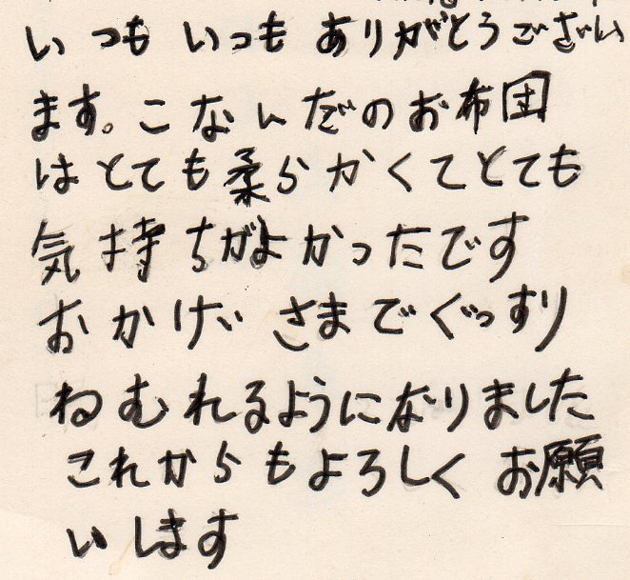 いつもいつもありがとうござい
ます。こなんだのお布団
はとても柔らかくてとても
気持ちがよかったです
おかげさまでぐっすり
ねむれるようになりました
これからもよろしくお願
いします